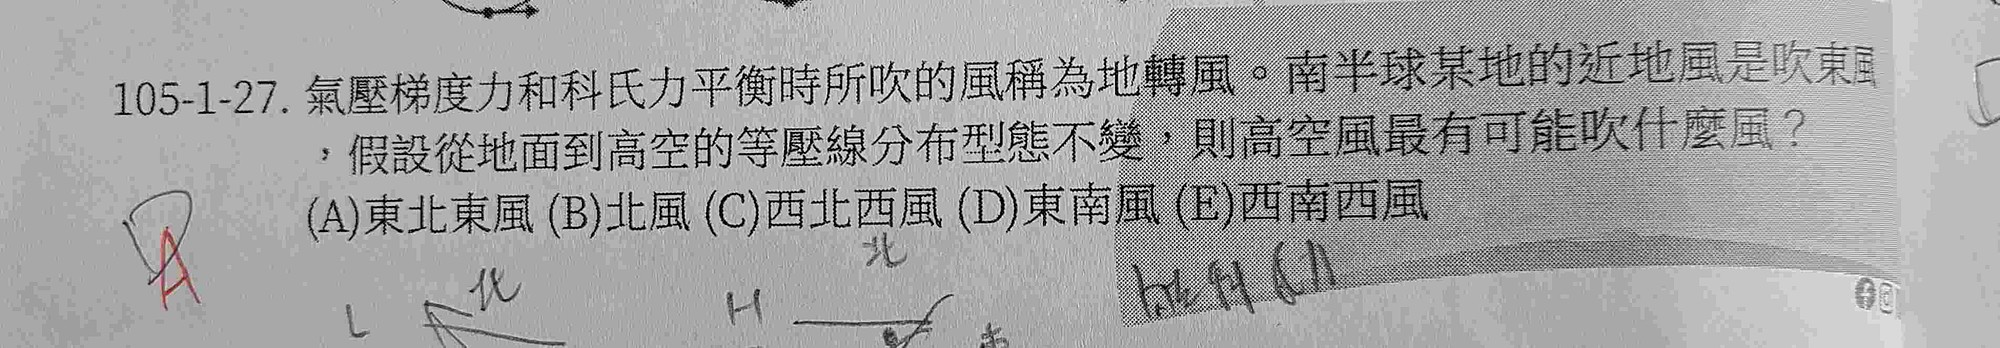 105-1-27. 氣壓梯度力和科氏力平衡時所吹的風稱為地轉風。南半球某地的近地風是吹東風
，假設從地面到高空的等壓線分布型態不變，則高空風最有可能吹什麼風？
(A)東北東風 (B)北風 (C)西北西風 (D)東南風 (E)西南西風
A
北
L
北
H